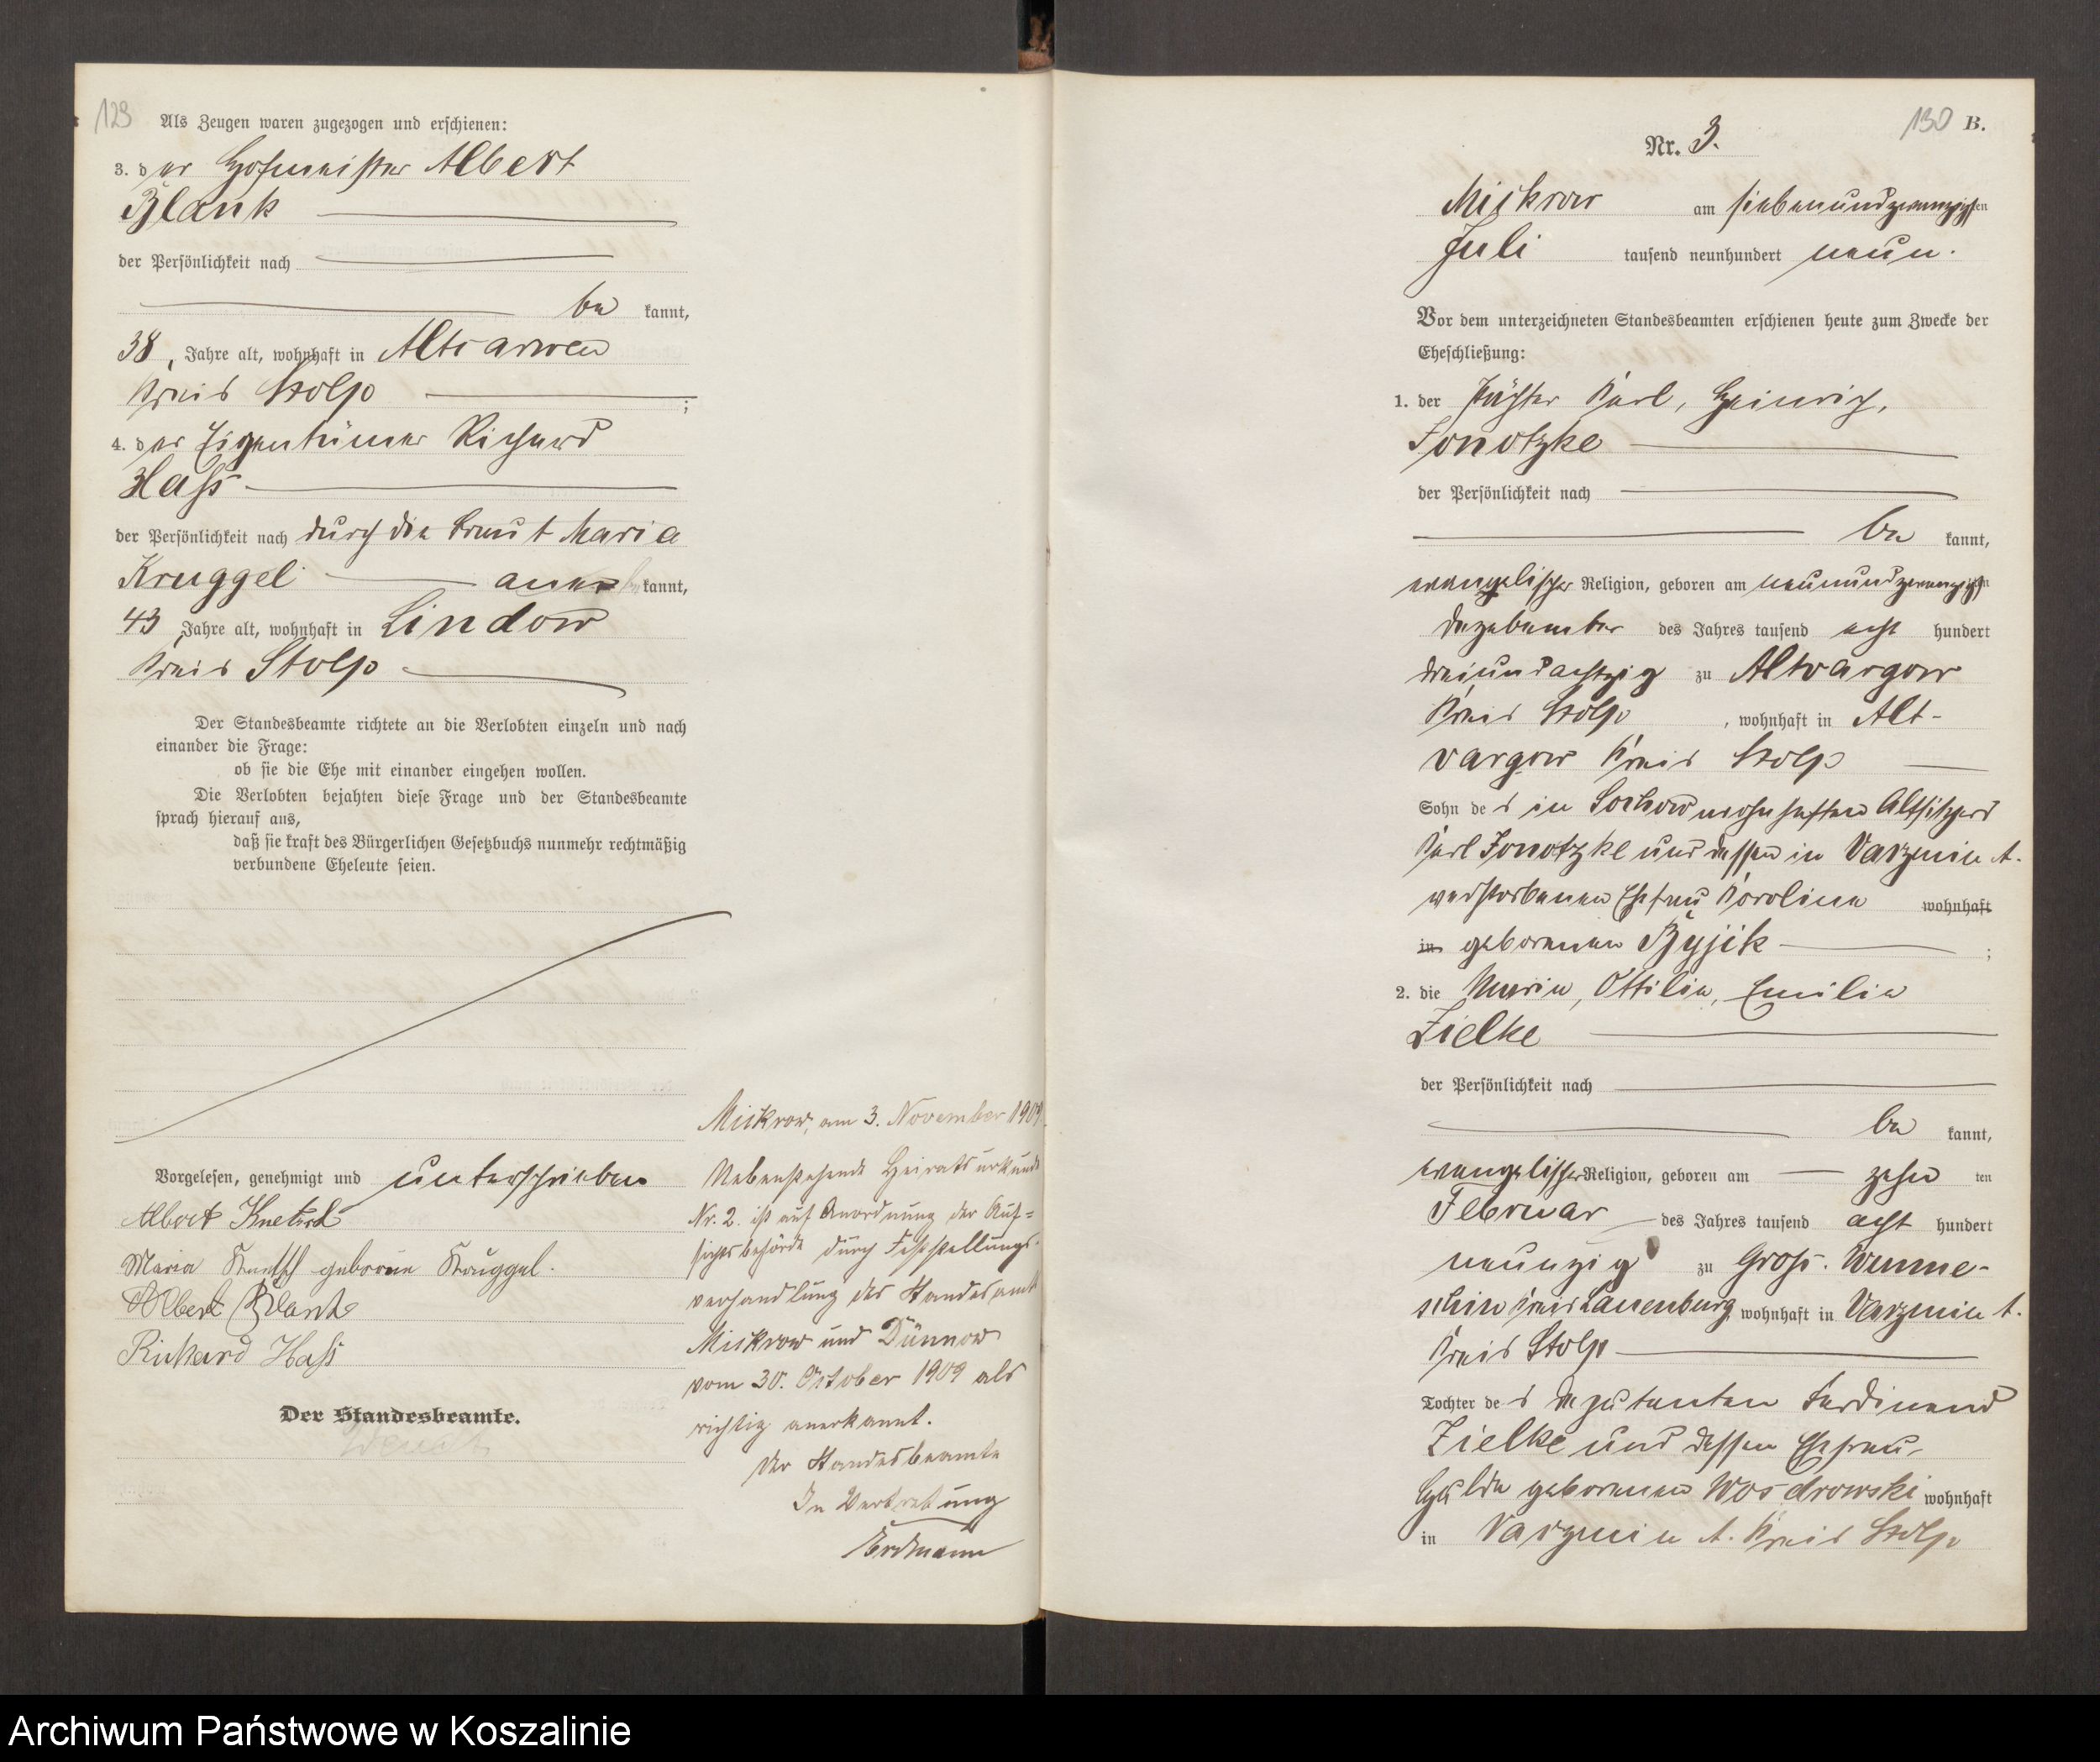 129
Als Zeugen waren zugezogen und erschienen:
3. der Hofmeister Albert
Blank
der Persönlichkeit nach
be kannt,
38, Jahre alt, wohnhaft in
Kreis Stolp ;
4. der Eigentümer Richard
Hass
der Persönlichkeit nach durch die Braut Maria
Kruggel aner kannt,
43 Jahre alt, wohnhaft in Lindow
Kreis Stolp
Der Standesbeamte richtete an die Verlobten einzeln und nach
einander die Frage:
ob sie die Ehe mit einander eingehen wollen.
Die Verlobten bejahten diese Frage und der Standesbeamte
sprach hierauf aus,
daß sie kraft des Bürgerlichen Gesetzbuchs nunmehr rechtmäßig
verbundene Eheleute seien.
Vorgelesen, genehmigt und unterschrieben
Albert
Maria geborene Kruggel.
Albert Blank
Richard Hass
Der Standesbeamte.
Mickrow, am 3. November 1909.
Nebenstehende Heiratsurkunde
Nr. 2. ist auf Anordnung der Auf=
sichtsbehörde durch Feststellungs-
verhandlung des Standesamt
Mickrow und Dünnow
vom 30. October 1909 als
richtig anerkannt.
Der Standesbeamte
In Vertretung
Erdmann
130 B.
Nr. 3.
Mickrow am siebenundzwanzigsten
Juli tausend neunhundert neun.
Vor dem unterzeichneten Standesbeamten erschienen heute zum Zwecke der
Eheschließung:
1. der Pächter Karl, Heinrich,
Jonotzke
der Persönlichkeit nach
be kannt,
evangelischer Religion, geboren am neunundzwanzigsten
Dezebember des Jahres tausend acht hundert
dreiundachtzig zu Altvargow
Kreis Stolp, wohnhaft in Alt-
vargow Kreis Stolp
Sohn des in Sochow wohnhaften Altsitzers
Karl Jonotzke und dessen in Varzmin A.
verstorbenen Ehefrau Karoline wohnhaft
in geborenen ;
2. die Marie, Ottilie, Emilie
Zielke
der Persönlichkeit nach
be kannt,
evangelischer Religion, geboren am zehn ten
Februar des Jahres tausend acht hundert
neunzig zu Gross. Wunne-
schin Kreis Lauenburg, wohnhaft in Varzmin A.
Kreis Stolp
Tochter des Deputanten Ferdinand
Zielke und dessen Ehefrau
Hulda geborenen Wosdrowski wohnhaft
in Varzmin A. Kreis Stolp
Archiwum Państwowe w Koszalinie